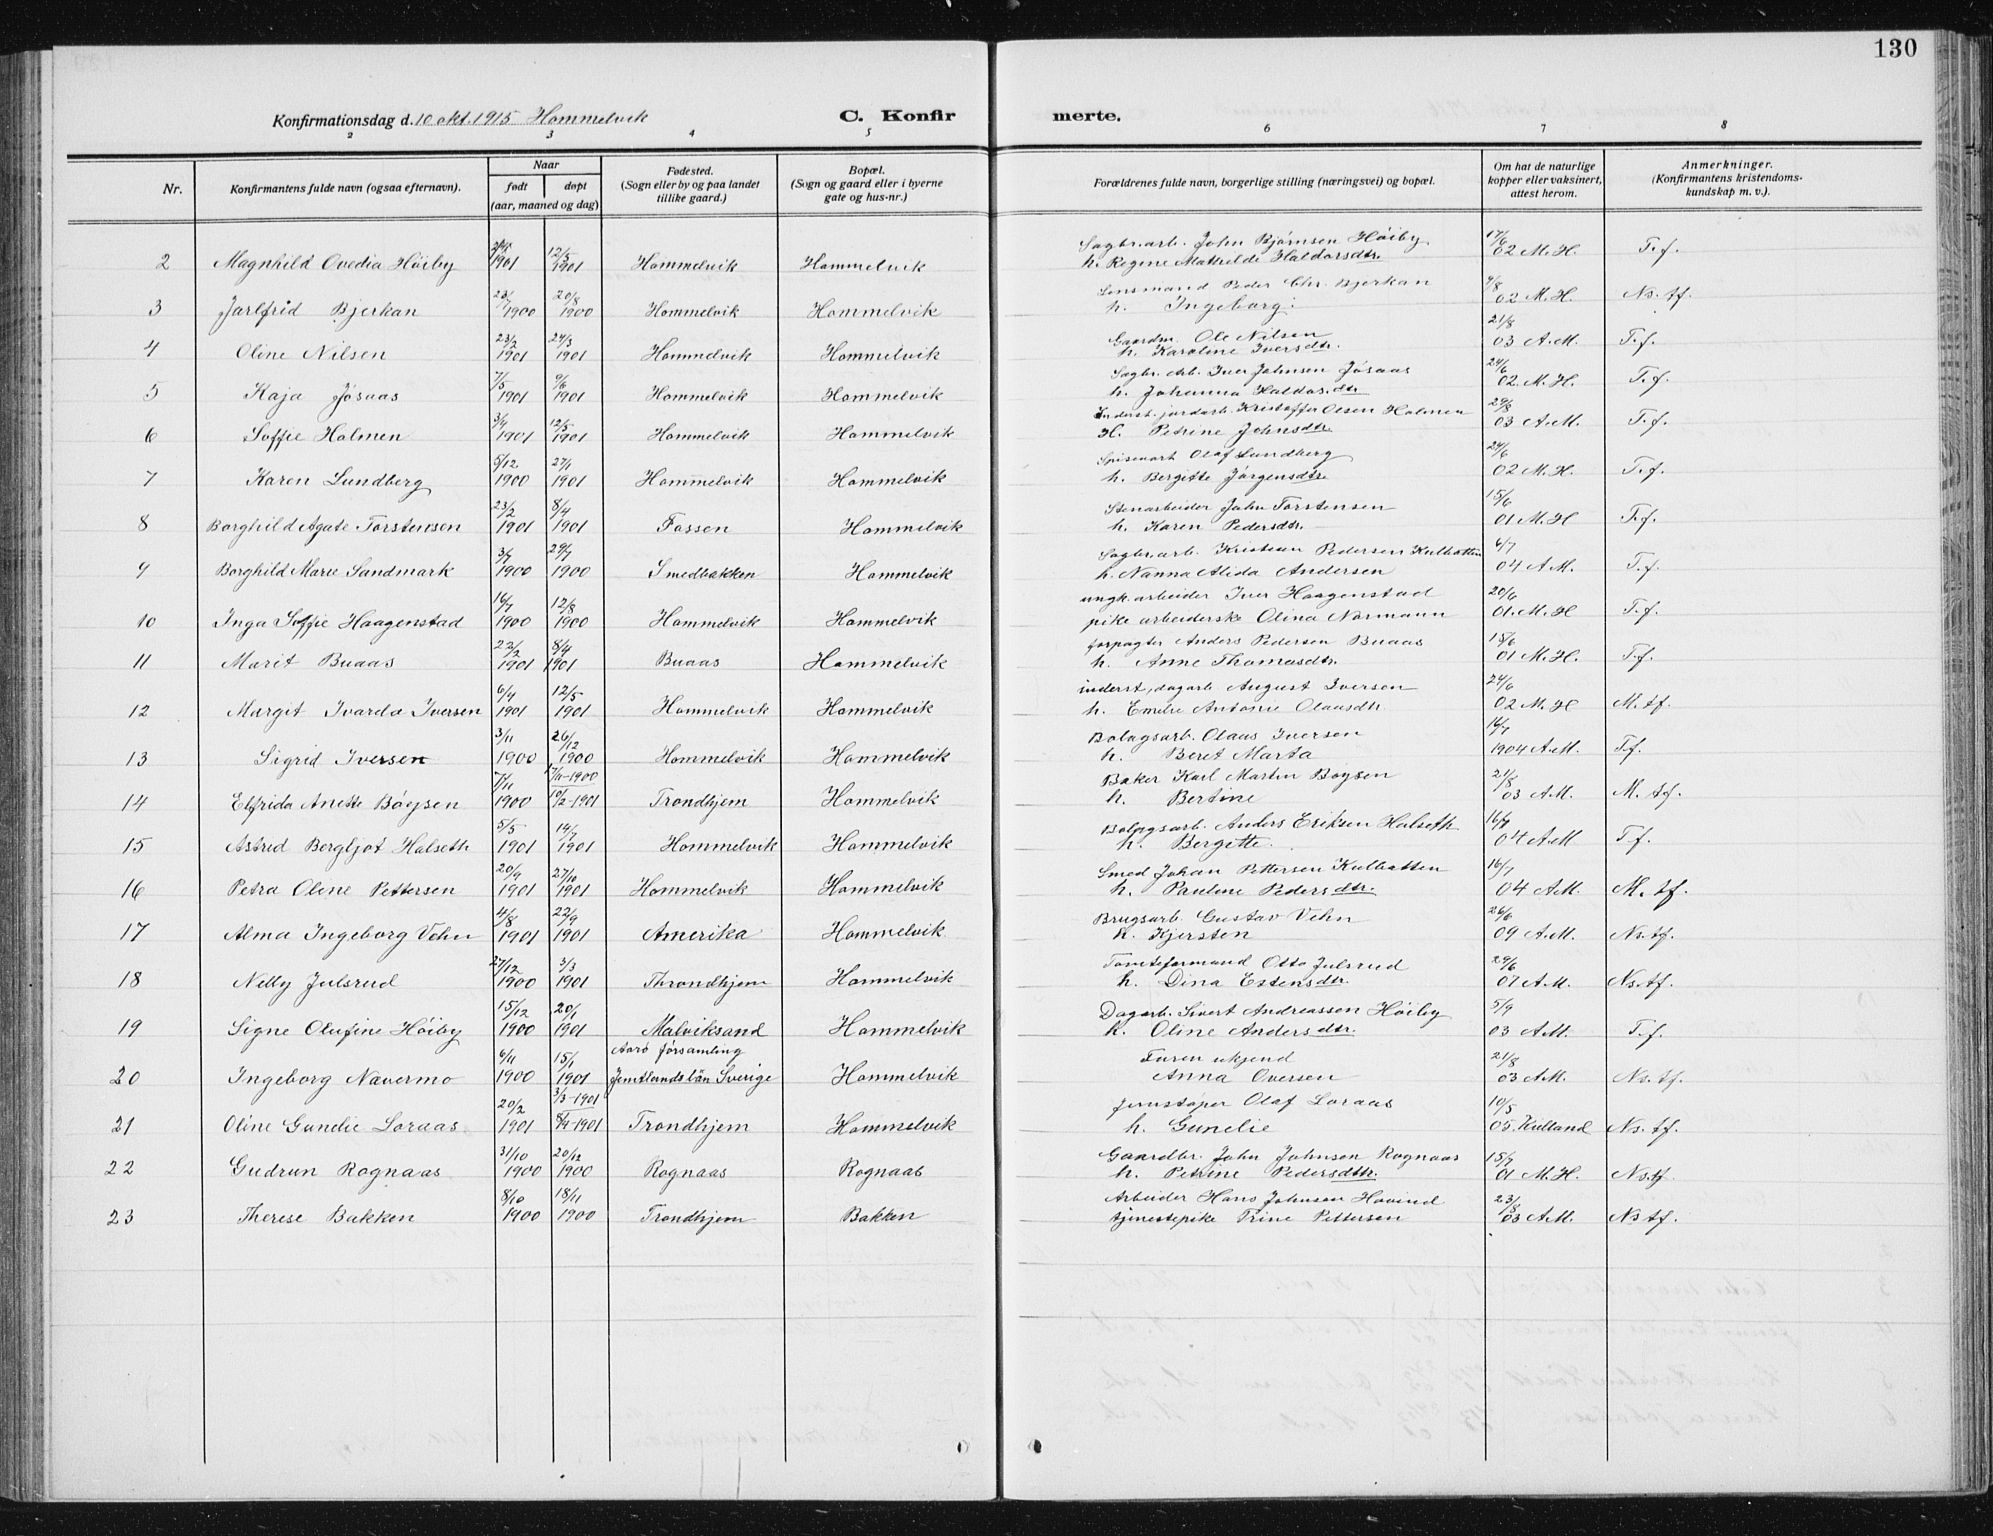 130
Konfirmationsdag d. 10 okt. 1915 Hommelvik C. Konfir merte.
2 3 4 5 6 7 8
Nr. Konfirmantens fulde navn (ogsaa efternavn). Naar født døpt (aar, maaned og dag) Fødested. (Sogn eller by og paa landet tillike gaard.) Bopæl. (Sogn og gaard eller i byerne gate og hus-nr.) Forældrenes fulde navn, borgerlige stilling (næringsvei) og bopæl. Om hat de naturlige kopper eller vaksinert, attest herom. Anmerkninger. (Konfirmantens kristendoms-kundskap m. v.).
2 Magnhild Ovedia Höiby 1901 12/5 1901 Hommelvik Hommelvik Sagbr.arb. John Bjørnsen Höiby h. Regine Mathilde Haldorsdtr. 17/6 02 M.H. T.f.
3 Jarlfrid Bjerkan 23/7 1900 20/8 1900 Hommelvik Hommelvik Lensmand Peder Chr. Bjerkan h. Ingeborg 02 M.H. Ns.tf.
4 Oline Nilsen 23/2 1901 24/3 1901 Hommelvik Hommelvik Gaardm. Ole Nilsen h. Karoline Iversdtr. 21/8 03 A.M. T.f.
5 Kaja Jösaas 7/5 1901 9/6 1901 Hommelvik Hommelvik Sagbr. Arb. Iver Johnsen Jösaas h. Johanna Haldosdtr 24/6 02 M.H. T.f.
6 Soffie Holmen 3/4 1901 12/5 1901 Hommelvik Hommelvik Inderst. jordarb. Kristoffer Olsen Holmen H. Petrine Johnsdtr. 29/8 03 A.M. T.f.
7 Karen Lundberg 5/12 1900 27/1 1901 Hommelvik Hommelvik Spisevært Olaf Lundberg h. Bergitte Jörgensdtr. 24/6 02 M.H. T.f.
8 Borghild Agate Torstensen 23/2 1901 8/4 1901 Fossen Hommelvik Stenarbeider John Torstensen h. Karen Pedersdtr. 15/6 01 M.H T.f.
9 Borghild Marie Sandmark 3/7 1900 29/7 1900 Smedbakken Hommelvik Sagbr.arb. Kristian Pedersen h. Nanna Alida Andersen 6/7 04 A.M. T.f.
10 Inga Soffie Haagenstad 16/7 1900 12/8 1900 Hommelvik Hommelvik ungk.arbeider Iver Haagenstad pike arbeiderske Olina Normann 20/6 01.M.H T.f.
11 Marit Buaas 22/2 1901 8/4 1901 Buaas Hommelvik forpagter Anders Pedersen Buaas h. Anne Thomasdtr. 15/6 01 M.H. T.f.
12 Margit Ivarda Iversen 6/4 1901 12/5 1901 Hommelvik Hommelvik inderst, dagarb August Iversen h. Emelie Antonie Olausdtr 24/6 02 M.H M.tf.
13 Sigrid Iversen 3/11 1900 26/12 1900 Hommelvik Hommelvik Bolagsarb. Olaus Iversen h. Beret Marta 16/7 1904 A.M. T.f.
14 Elfrida Anette Böysen 7/11 1900 17/11-1900 10/2-1901 Trondhjem Hommelvik Baker Karl Martin Boysen h. Bertine 21/8 03 A.M. M. tf.
15 Astrid Bergljot Halseth 5/5 1901 14/7 1901 Hommelvik Hommelvik Anders Eriksen Halseth h. Bergitte. 16/7 04 A.M T.f.
16 Petra Oline Pettersen 20/9 1901 27/10 1901 Hommelvik Hommelvik Smed Johan Pettersen Kulbotten h. Pauline Pedersdtr. 16/7 04 A.M. M. tf.
17 Alma Ingeborg Vehn 4/8 1901 22/9 1901 Amerika Hommelvik Brugsarb. Gustav Vehn h. Kjersten 26/6 09 A.M. Ns.tf.
18 Nelly Julsrud 27/12 1900 3/3 1901 Throndhjem Hommelvik Tomteformand Otto Julsrud h. Dina Estensdtr. 29/6 07 A.M. Ns.tf.
19 Signe Olufine Höiby 15/12 1900 20/1 1901 Malviksand Hommelvik Dagarb. Sivert Andreassen Höiby h. Oline Andersdtr. 5/9 03 A.M. T.f.
20 Ingeborg Navermo 6/11 1900 15/1 1901 församling Jemtlandslän Sverige Hommelvik Faren ukjend Anna Oversen 21/8 03 A.M. Ns.tf.
21 Oline Gunelie Loraas 20/2 1901 3/3-1901 8/4-1901 Trondhjem Hommelvik Jernstøper Olaf Loraas h. Gunelie 10/5 05. Ns.tf.
22 Gudrun Rognaas 31/10 1900 20/12 1900 Rognaas Rognaas Gaardbr. John Johnsen Rognaas h. Petrine Pedersdtr. 15/7 01 M.H. Ns.tf.
23 Therese Bakken 8/10 1900 18/11 1900 Trondhjem Bakken Arbeider Hans Johnsen Hovind tjenestepike Trine Pettersen 23/8 03 A.M. Ns tf.